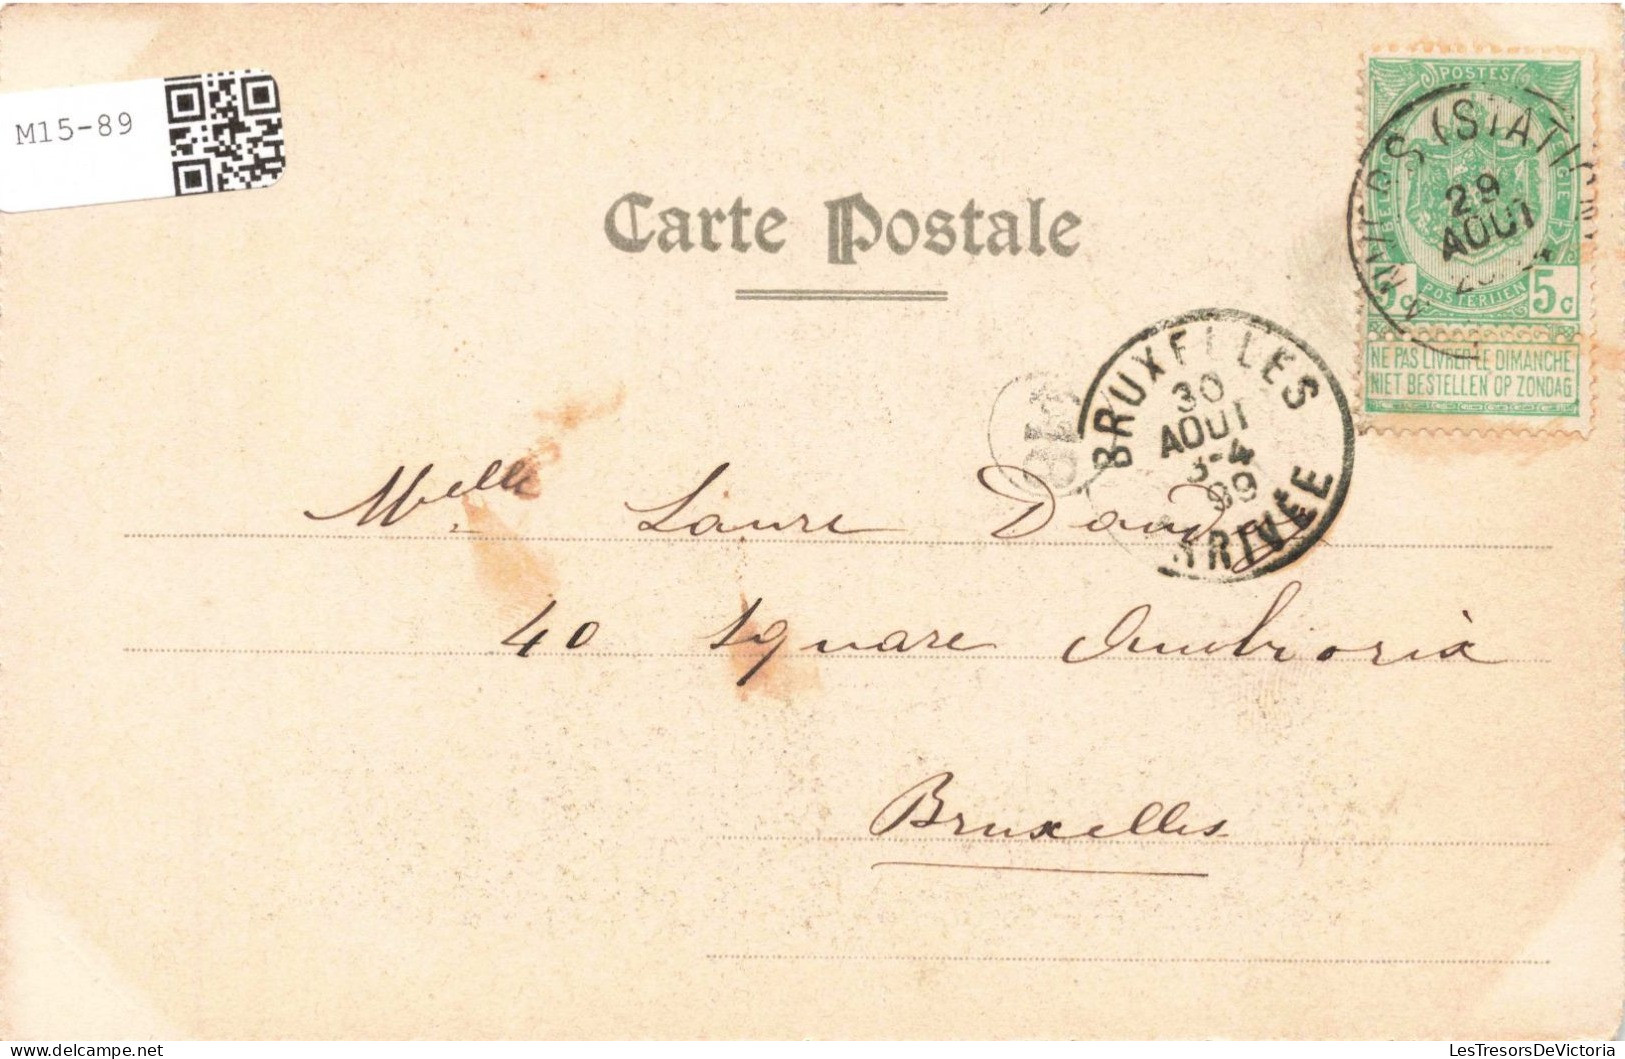 M15-89
Carte Postale
POSTES
BELGIQUE
POSTERIJEN
5c 5c
NE PAS LIVRER LE DIMANCHE
NIET BESTELLEN OP ZONDAG
S (STATION)
29
AOUT
BRUXELLES
30
AOUT
3-4
99
ARRIVÉE
Melle Laure
40 square Ambiorix
Bruxelles
LesTresorsDeVictoria